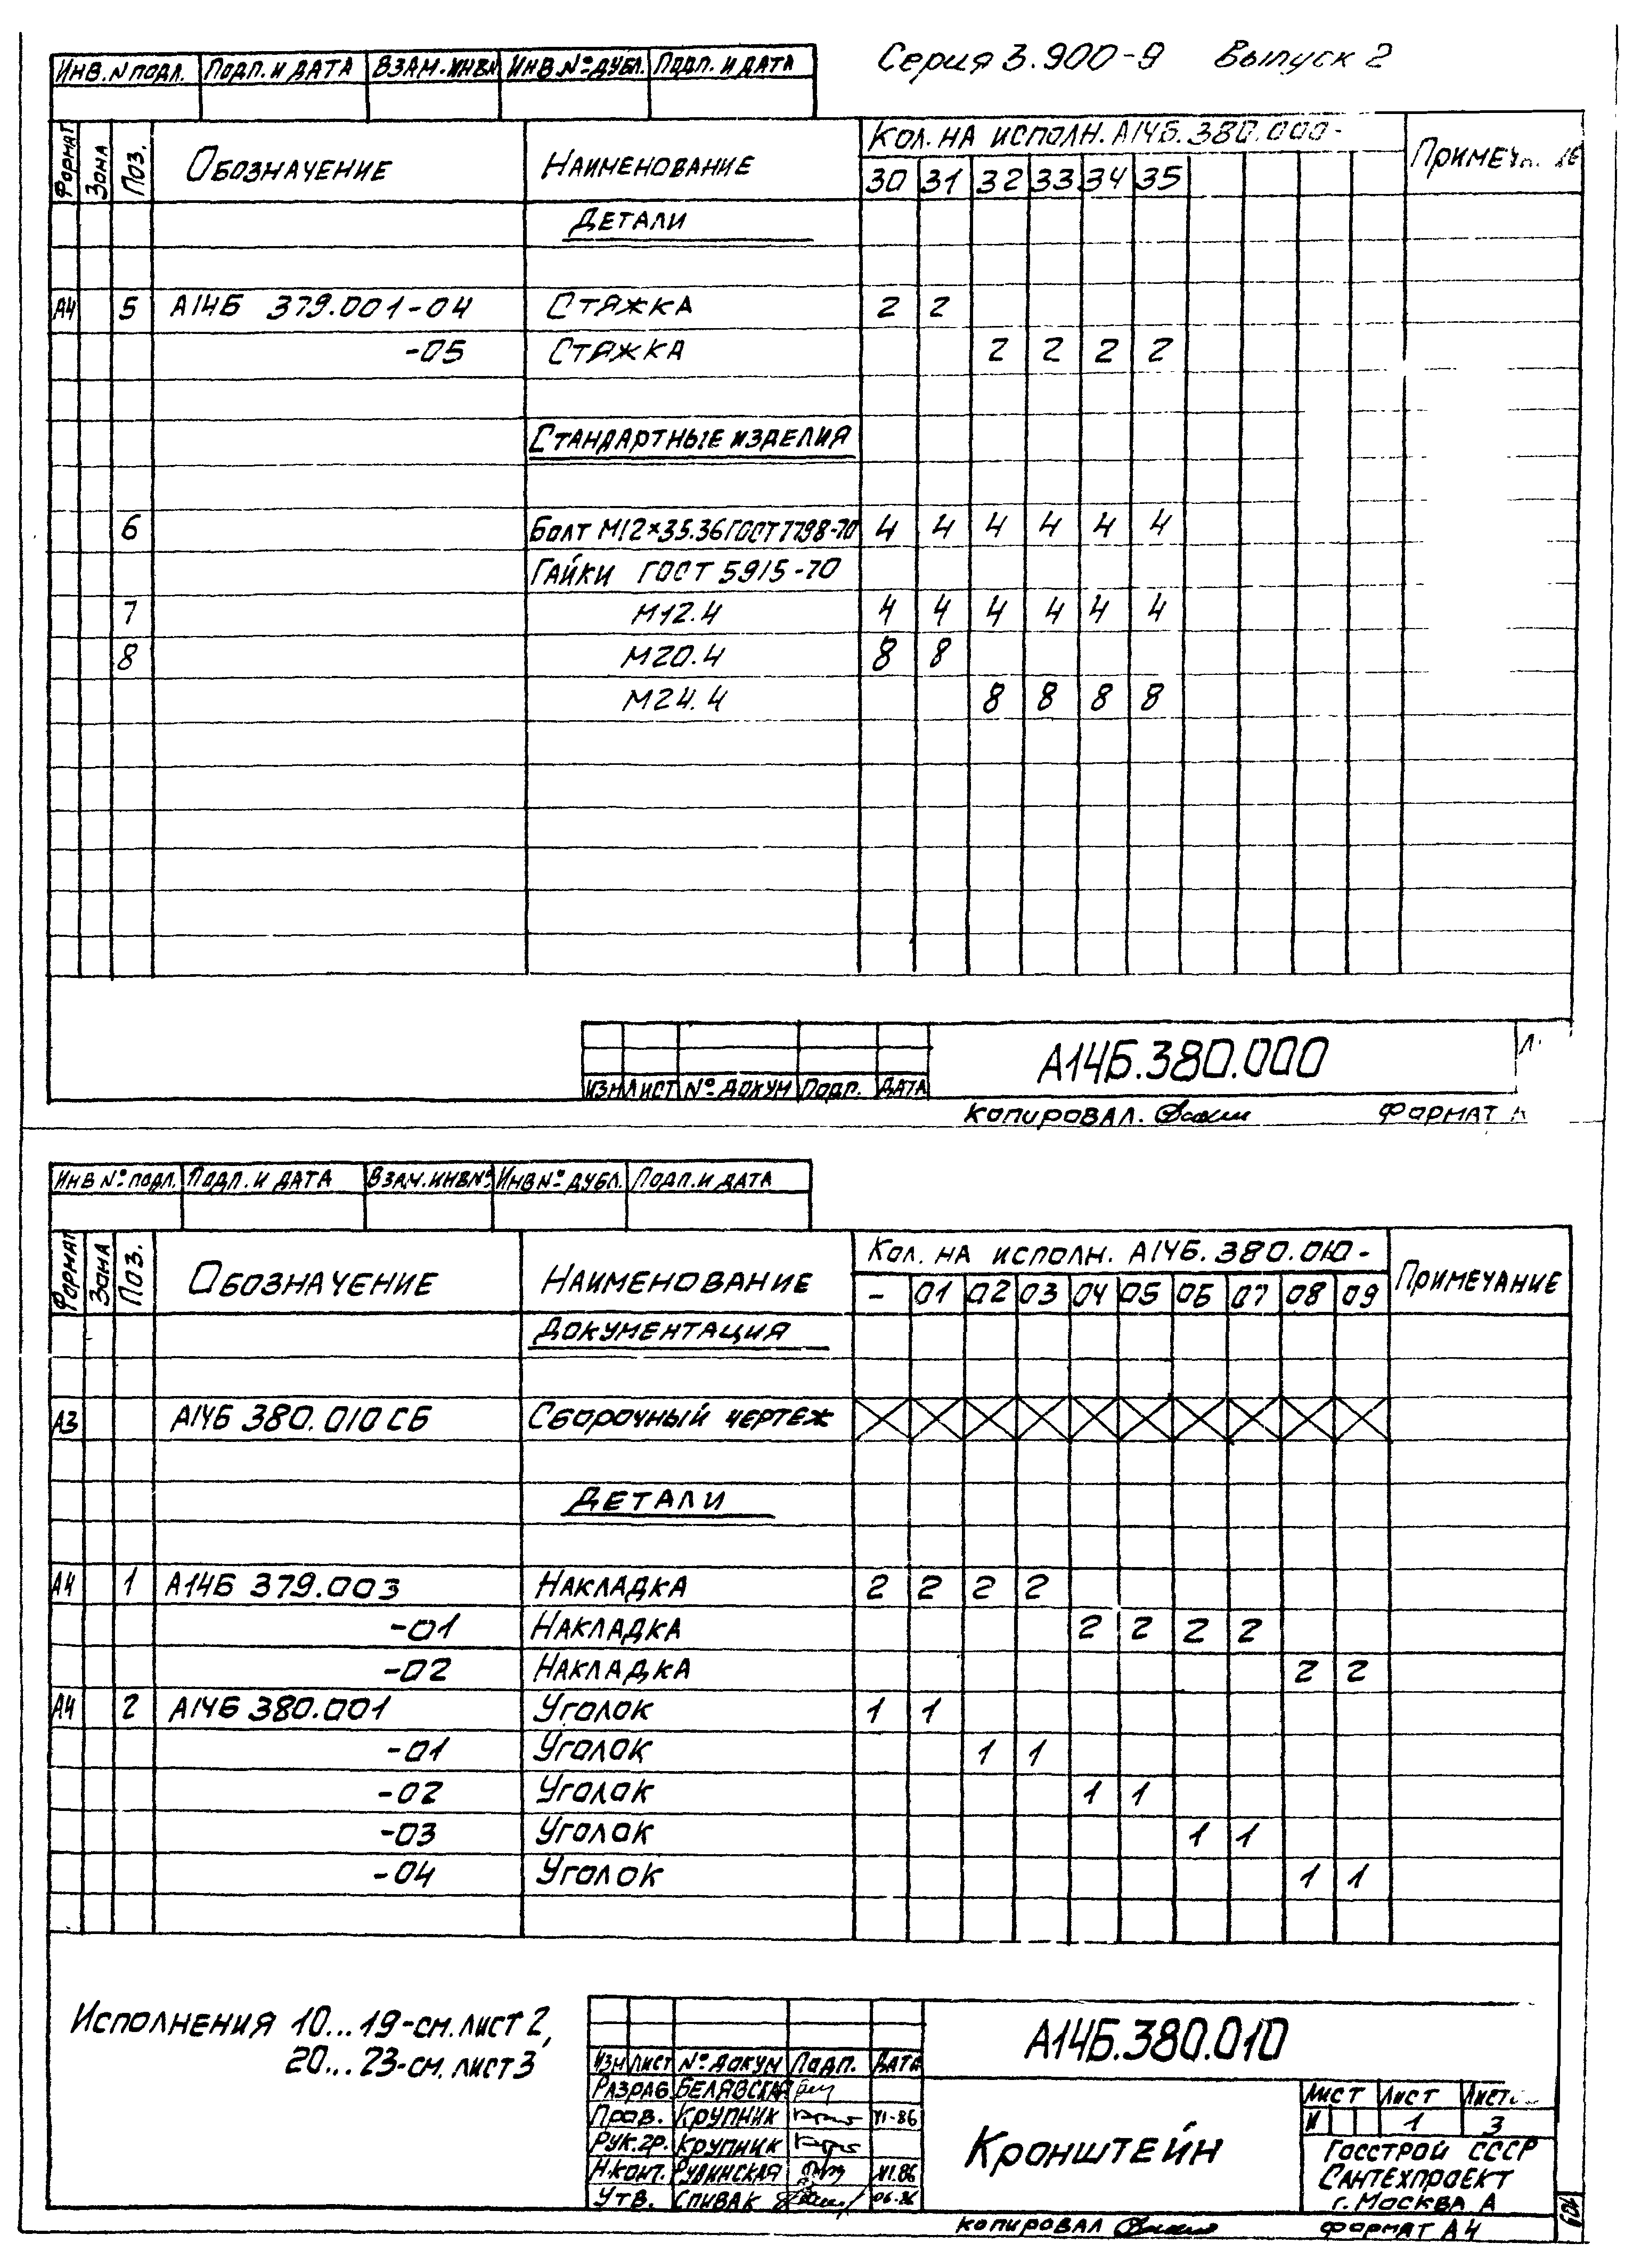 Серия 3.900-9 Выпуск 2
Инв. N подл. Подп. и дата Взам. инв. N Инв. № дубл. Подп. и дата
Формат Зона Поз. Обозначение Наименование Кол. на исполн. А14Б.380.000-
30 31 32 33 34 35
Детали
А4 5 А14Б 379.001-04 Стяжка 2 2
-05 Стяжка 2 2 2 2
Стандартные изделия
6 Болт М12×35.36 ГОСТ 7798-70 4 4 4 4 4 4
Гайки ГОСТ 5915-70
7 М12.4 4 4 4 4 4 4
8 М20.4 8 8
М24.4 8 8 8 8
А14Б.380.000
Изм Лист № докум Подп. Дата
Копировал. Формат
Инв № подл. Подп. и дата Взам. инв № Инв № дубл. Подп. и дата
Формат Зона Поз. Обозначение Наименование Кол. на исполн. А14Б.380.010- Примечание
- 01 02 03 04 05 06 07 08 09
Документация
А3 А14Б 380.010 СБ Сборочный чертеж
Детали
А4 1 А14Б 379.003 Накладка 2 2 2 2
-01 Накладка 2 2 2 2
-02 Накладка 2 2
А4 2 А14Б 380.001 Уголок 1 1
-01 Уголок 1 1
-02 Уголок 1 1
-03 Уголок 1 1
-04 Уголок 1 1
Исполнения 10...19-см. лист 2,
20...23-см. лист 3
А14Б.380.010
Изм Лист № докум Подп. Дата
Разраб. Белявская
Пров. Крупник VI-86
Рук. гр. Крупник
Н. конт. Рудинская VI.86
Утв. Спивак 06-86
Кронштейн
Лист Лист
И 1 3
Госстрой СССР
Сантехпроект
г. Москва А
Копировал Формат А4